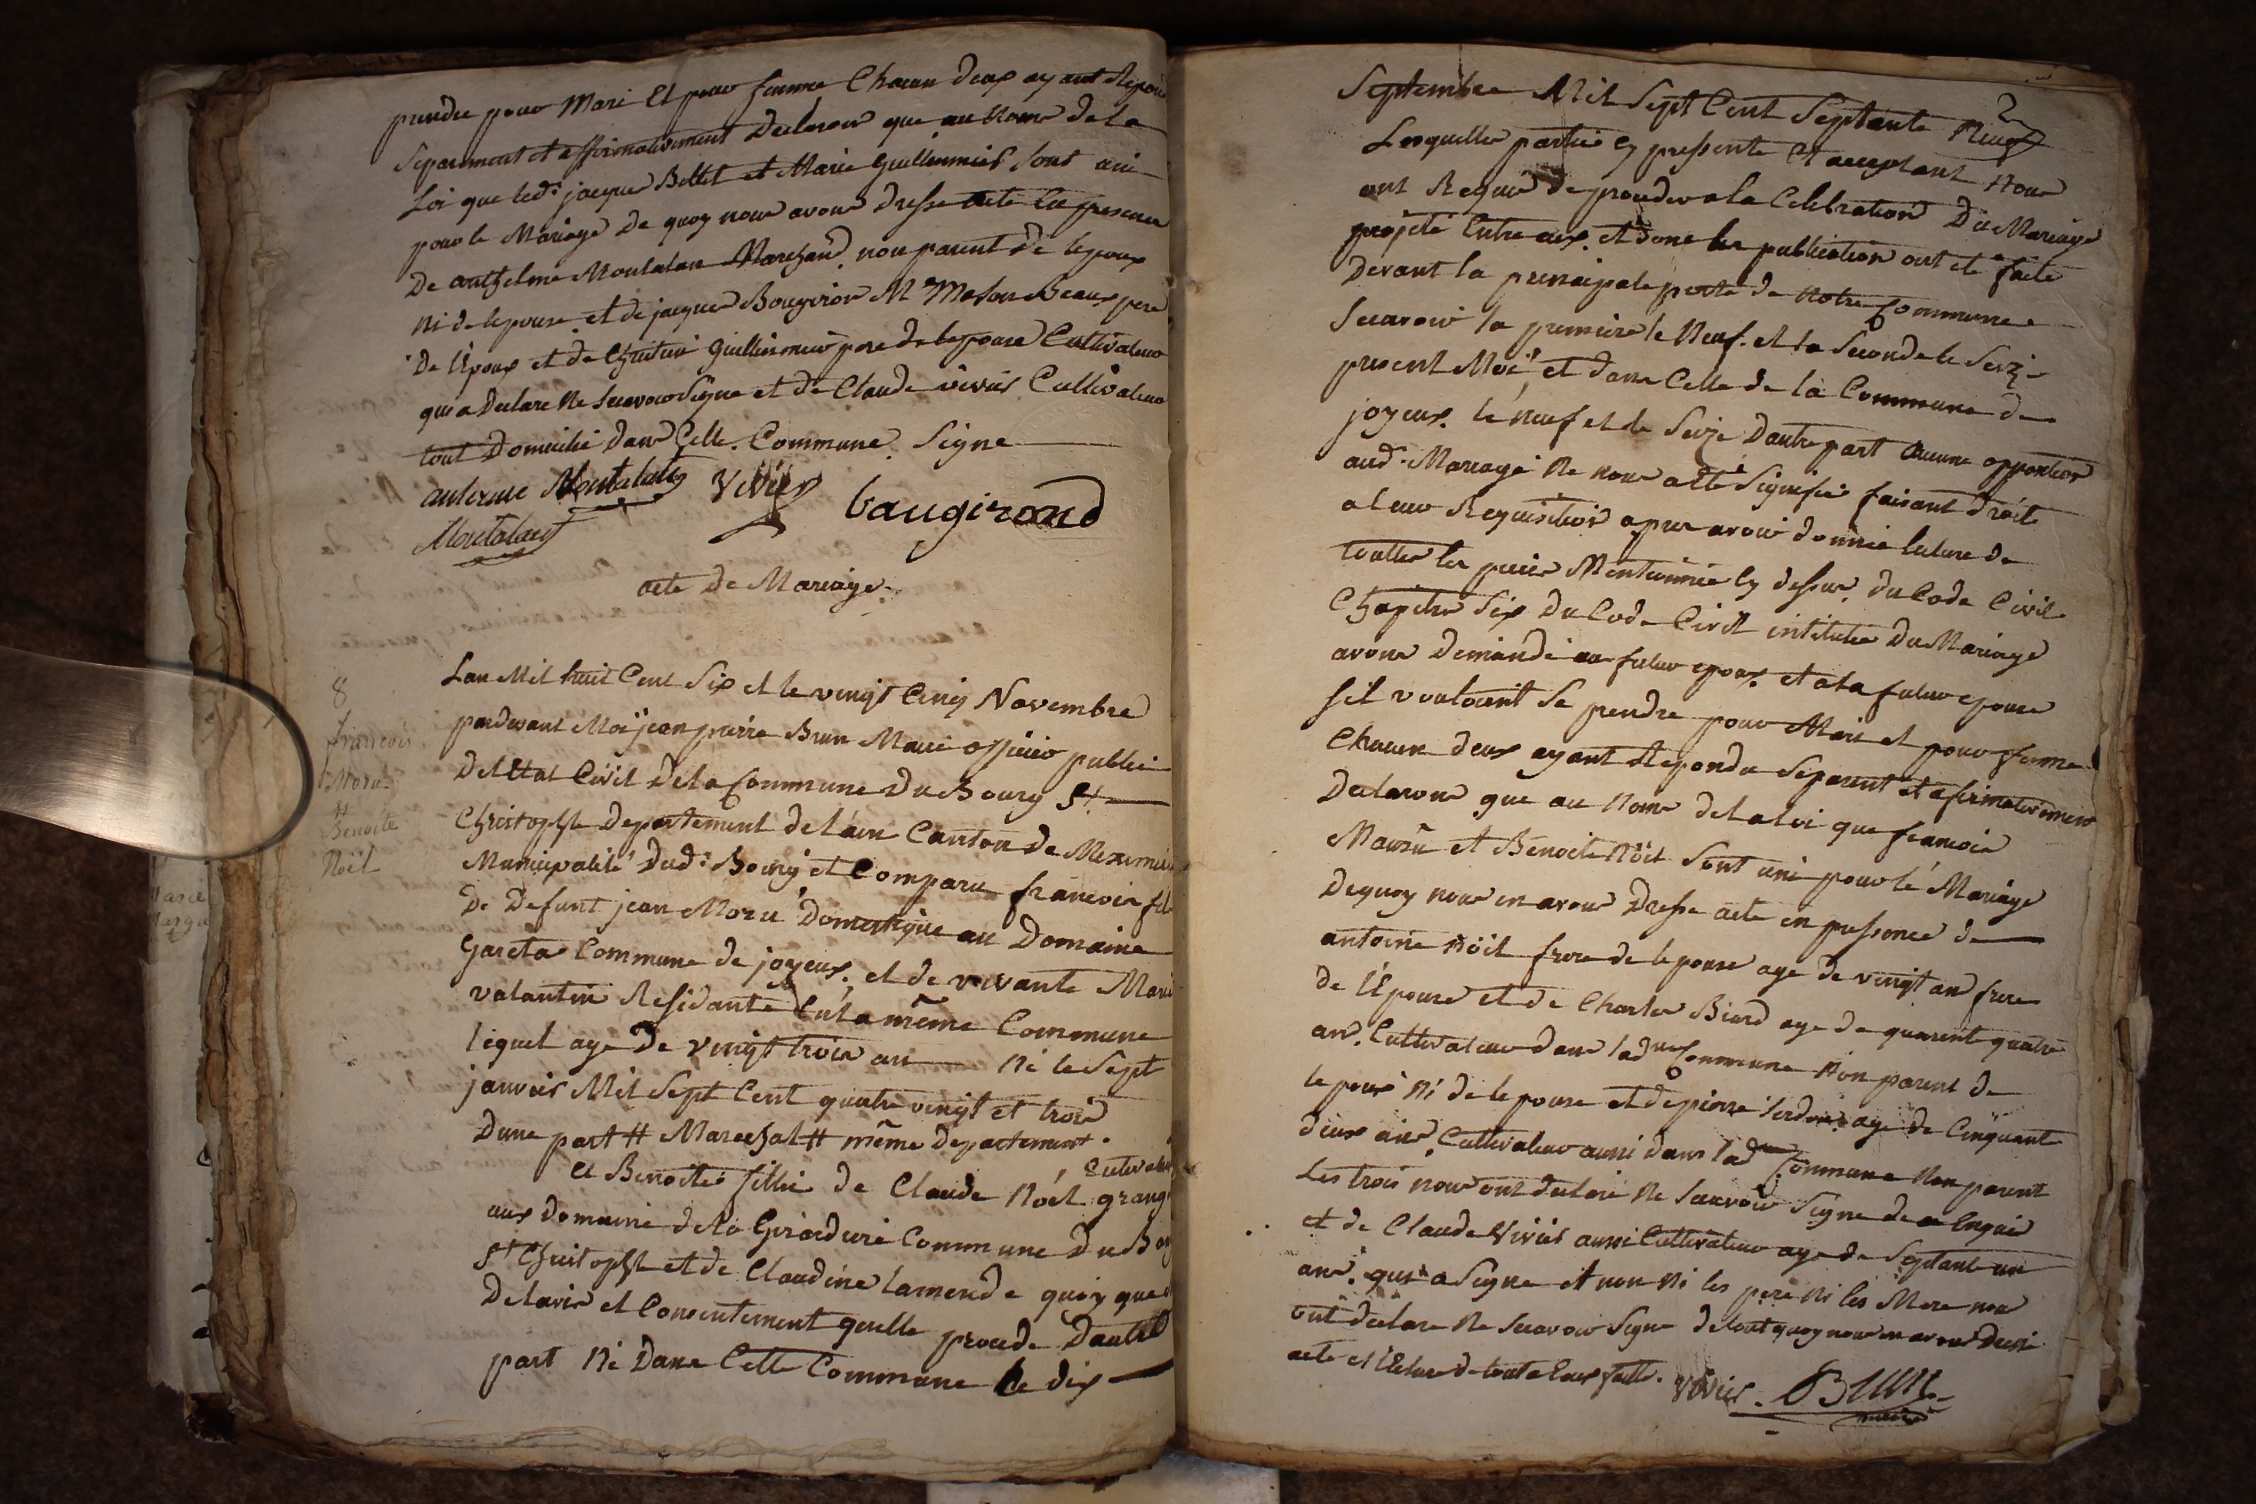 prendre pour Mari Et pour femme Chacun deux ayant Repondu
Separement et affirmativement Declarons que au Nom de la
Loi que led. jacque Bellet et Marie Guillermier Sont uni
pour le Mariage De quoy nous avons dresse acte En presence
De anthelme Montalan Marchand non parent de lepoux
Ni de lepouse et de jacque Bougiron M Mason Beaux pere
De lEpoux et de guillermier pere de lepouse Cultivateur
qui a Declare Ne Scavoir Signe et de Claude vivier Cultivateur
tout Domicilie dans Celle Commune Signe
Montalan vivier baugirond
Montaland
acte De Mariage
8
francois
Moru
#
Benoite
Noël
Lan Mil huit Cent Six et le vingt Cinq Novembre
pardevant Moi jean pierre Brun Maire officier public
De lEtat Civil De la Commune Du Bourg St
Christophe Departement de lain Canton de Meximieu
Municipalité Dud. Bourg et Comparu francois fils
De Defunt jean Moru Domestique au Domaine
Gareta Commune de joyeux et de vivante Marie
valantin Residante En la même Commune
lequel age De vingt trois an Né le Sept
janvier Mil Sept Cent quatre vingt et trois
Dune part # Marechal # même Departement.
Et Benoite fille de Claude Noël Cultivateur grang
aux domaine de la Girardiere Commune Du Bourg
St Christophe et de Claudine lamende quoy que
De lavis et Consentement quelle procede Dautre
part Né Dans Cette Commune le dix
2
Septembre Mil Sept Cent Septante Neuf
Lesquelle partie Cy presente Et acceptant Nous
ont Requis de proceder a la Celebration Du Mariage
projeté Entre eux et donc les publication ont ete faite
Devant la principale porte de Notre Commune
Scavoir la premiere le Neuf et la Seconde le Seize
present Moi et dans Celle de la Commune de
joyeux le neuf et le Seize Dautre part Aucune opposition
aud. Mariage Ne nous a été Signifié faisant droit
a leur Requisition apres avoir donnée lecture de
toutter les pieces Mentionnée Cy dessus du Code Civil
Chapitre Six Du Code Civil intitulee Du Mariage
avons Demandé au futur epoux et a la futur epouse
Sil vouloient Se prendre pour Mari et pour femme
Chacun deux ayant Repondu Separent et afirmativement
Declarons que au Nom de la loi que francois
et Benoite Noël Sont uni pour le Mariage
De quoy nous en avons Dresse acte en presence de
antoine Noël frere de lepouse age de vingt an frere
de lEpouse et de Charles Biard age de quarent quatre
an Cultivateur dans lad Commune Non parent de
lepoux Ni de lepouse et de pierre age de Cinquant
deux ans Cultivateur aussi dans lad Commune Non parent
Les trois nous ont declaré Ne Scavoir Signe de Enquis
et de Claude vivier aussi Cultivateur age de Septante un
ans qui a Signe et non Ni les pere Ni les Mere nou
ont declare Ne Scavoir Signe de tout quoy nous en avons
acte et lecture de toute leur faitte.
vivier Brun
maire